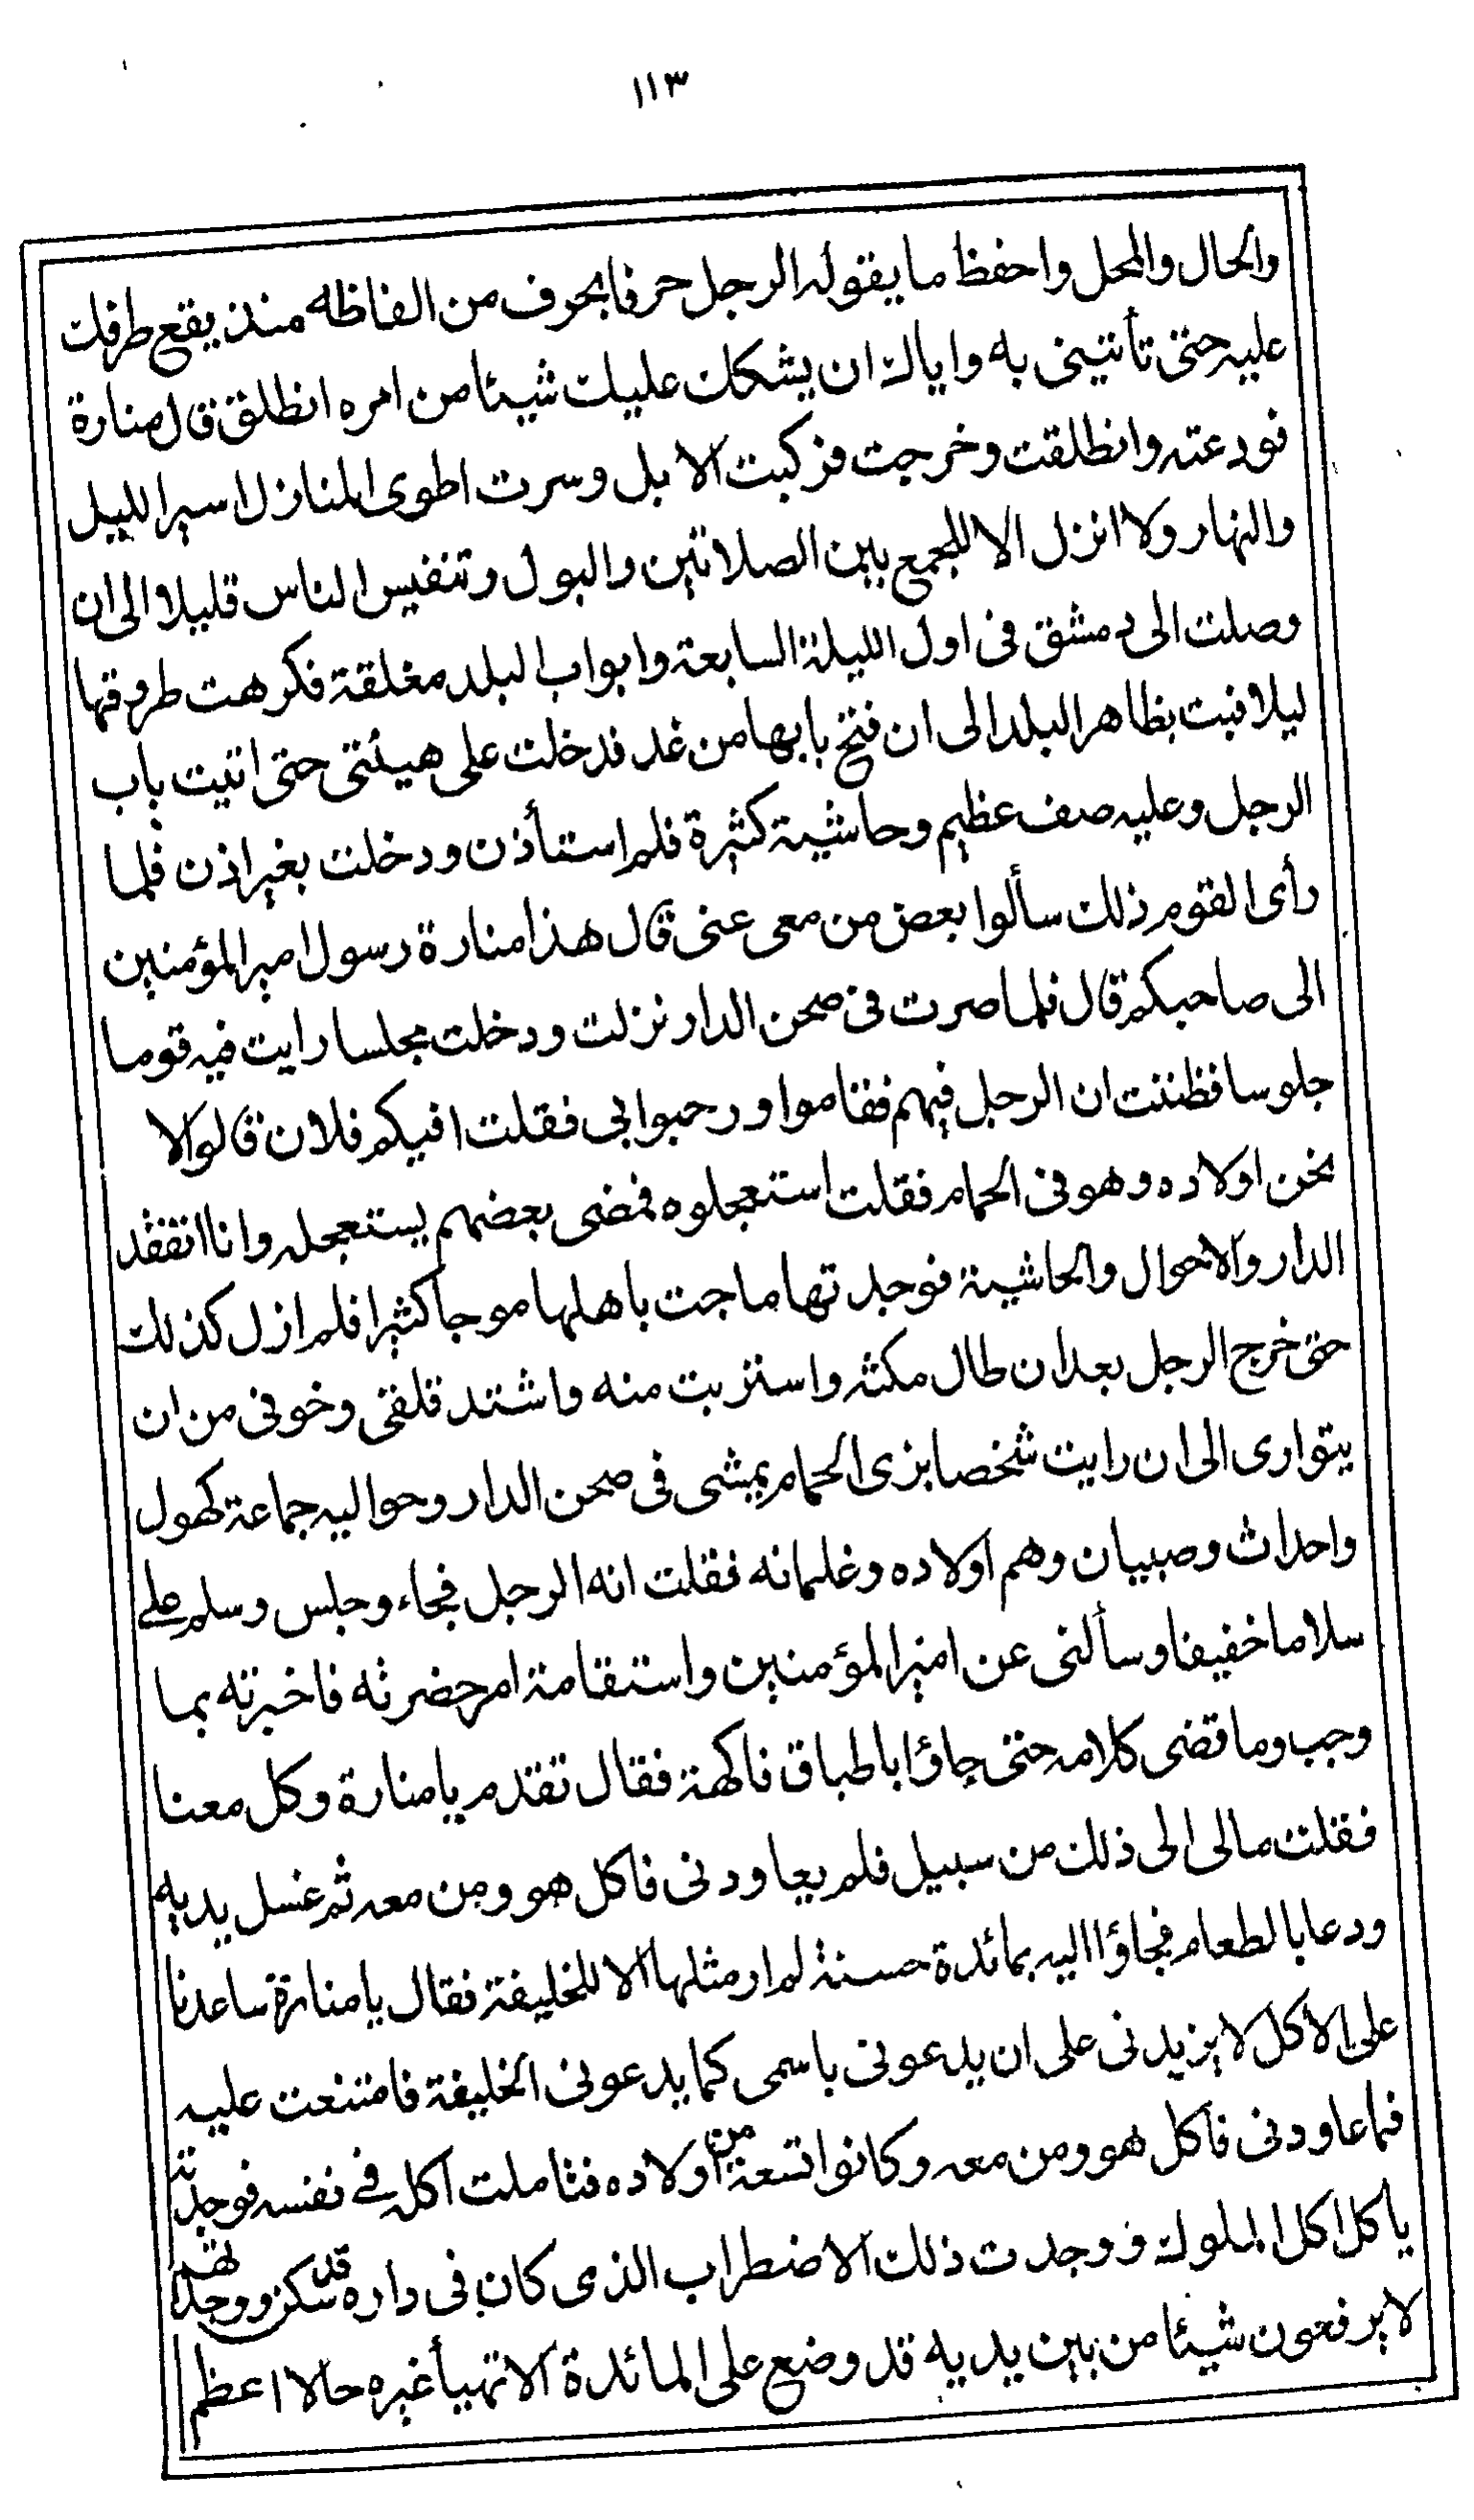 ١١٣
والحال والمحل واحفظ ما يقوله الرجل حرفا بحرف من الفاظه منذ يقع طرفك
عليه حتى تأتينى به واياك ان يشكك عليك شيئا من امره انطلق قال منارة
فودعته وانطلقت وخرجت فركبت الابل وسرت اطوى المنازل اسير الليل
والنهار ولا انزل الا للجمع بين الصلاتين والبول وتنفيس الناس قليلا الى ان
وصلت الى دمشق فى اول الليلة السابعة وابواب البلد مغلقة فكرهت طروقها
ليلا فبت بظاهر البلد الى ان فتح بابها من غد فدخلت على هيئتى حتى اتيت باب
الرجل وعليه صف عظيم وحاشية كثيرة فلم استأذن ودخلت بغير اذن فلما
رأى القوم ذلك سألوا بعض من معى عنى قال هذا منارة رسول امير المؤمنين
الى صاحبكم قال فلما صرت فى صحن الدار نزلت ودخلت مجلسا رايت فيه قوما
جلوسا فظننت ان الرجل فيهم فقاموا ورحبوا بى فقلت افيكم فلان قالوا لا
نحن اولاده وهو فى الحمام فقلت استعجلوه فمضى بعضهم يستعجله وانا اتفقد
الدار والاحوال والحاشية فوجدتها ماجت باهلها موجا كثيرا فلم ازل كذلك
حتى خرج الرجل بعد ان طال مكثه واستربت منه واشتد قلقى وخوفى من ان
يتوارى الى ان رايت شخصا بزى الحمام يمشى فى صحن الدار وحواليه جماعة كهول
واحداث وصبيان وهم اولاده وغلمانه فقلت انه الرجل فجاء وجلس وسلم على
سلاما خفيفا وسألنى عن امير المؤمنين واستقامة امر حضرته فاخبرته بما
وجب وما قضى كلامه حتى جاؤا باطباق فاكهة فقال تقدم يا منارة وكل معنا
فقلت مالى الى ذلك من سبيل فلم يعاودنى فاكل هو ومن معه ثم غسل يديه
ودعا بالطعام فجاؤا اليه بمائدة حسنة لم ار مثلها الا للخليفة فقال يا منارة ساعدنا
على الاكل لا يزيدنى على ان يدعونى باسمى كما يدعونى الخليفة فامتنعت عليه
فما عاودنى فاكل هو ومن معه وكانوا تسعة من اولاده فتاملت اكله فى نفسه فوجدته
ياكل اكل الملوك ووجدت ذلك الاضطراب الذى كان فى داره قد سكن ووجدتهم
لا يرفعون شيئا من بين يديه قد وضع على المائدة الا تهيأ غيره حالا اعظم